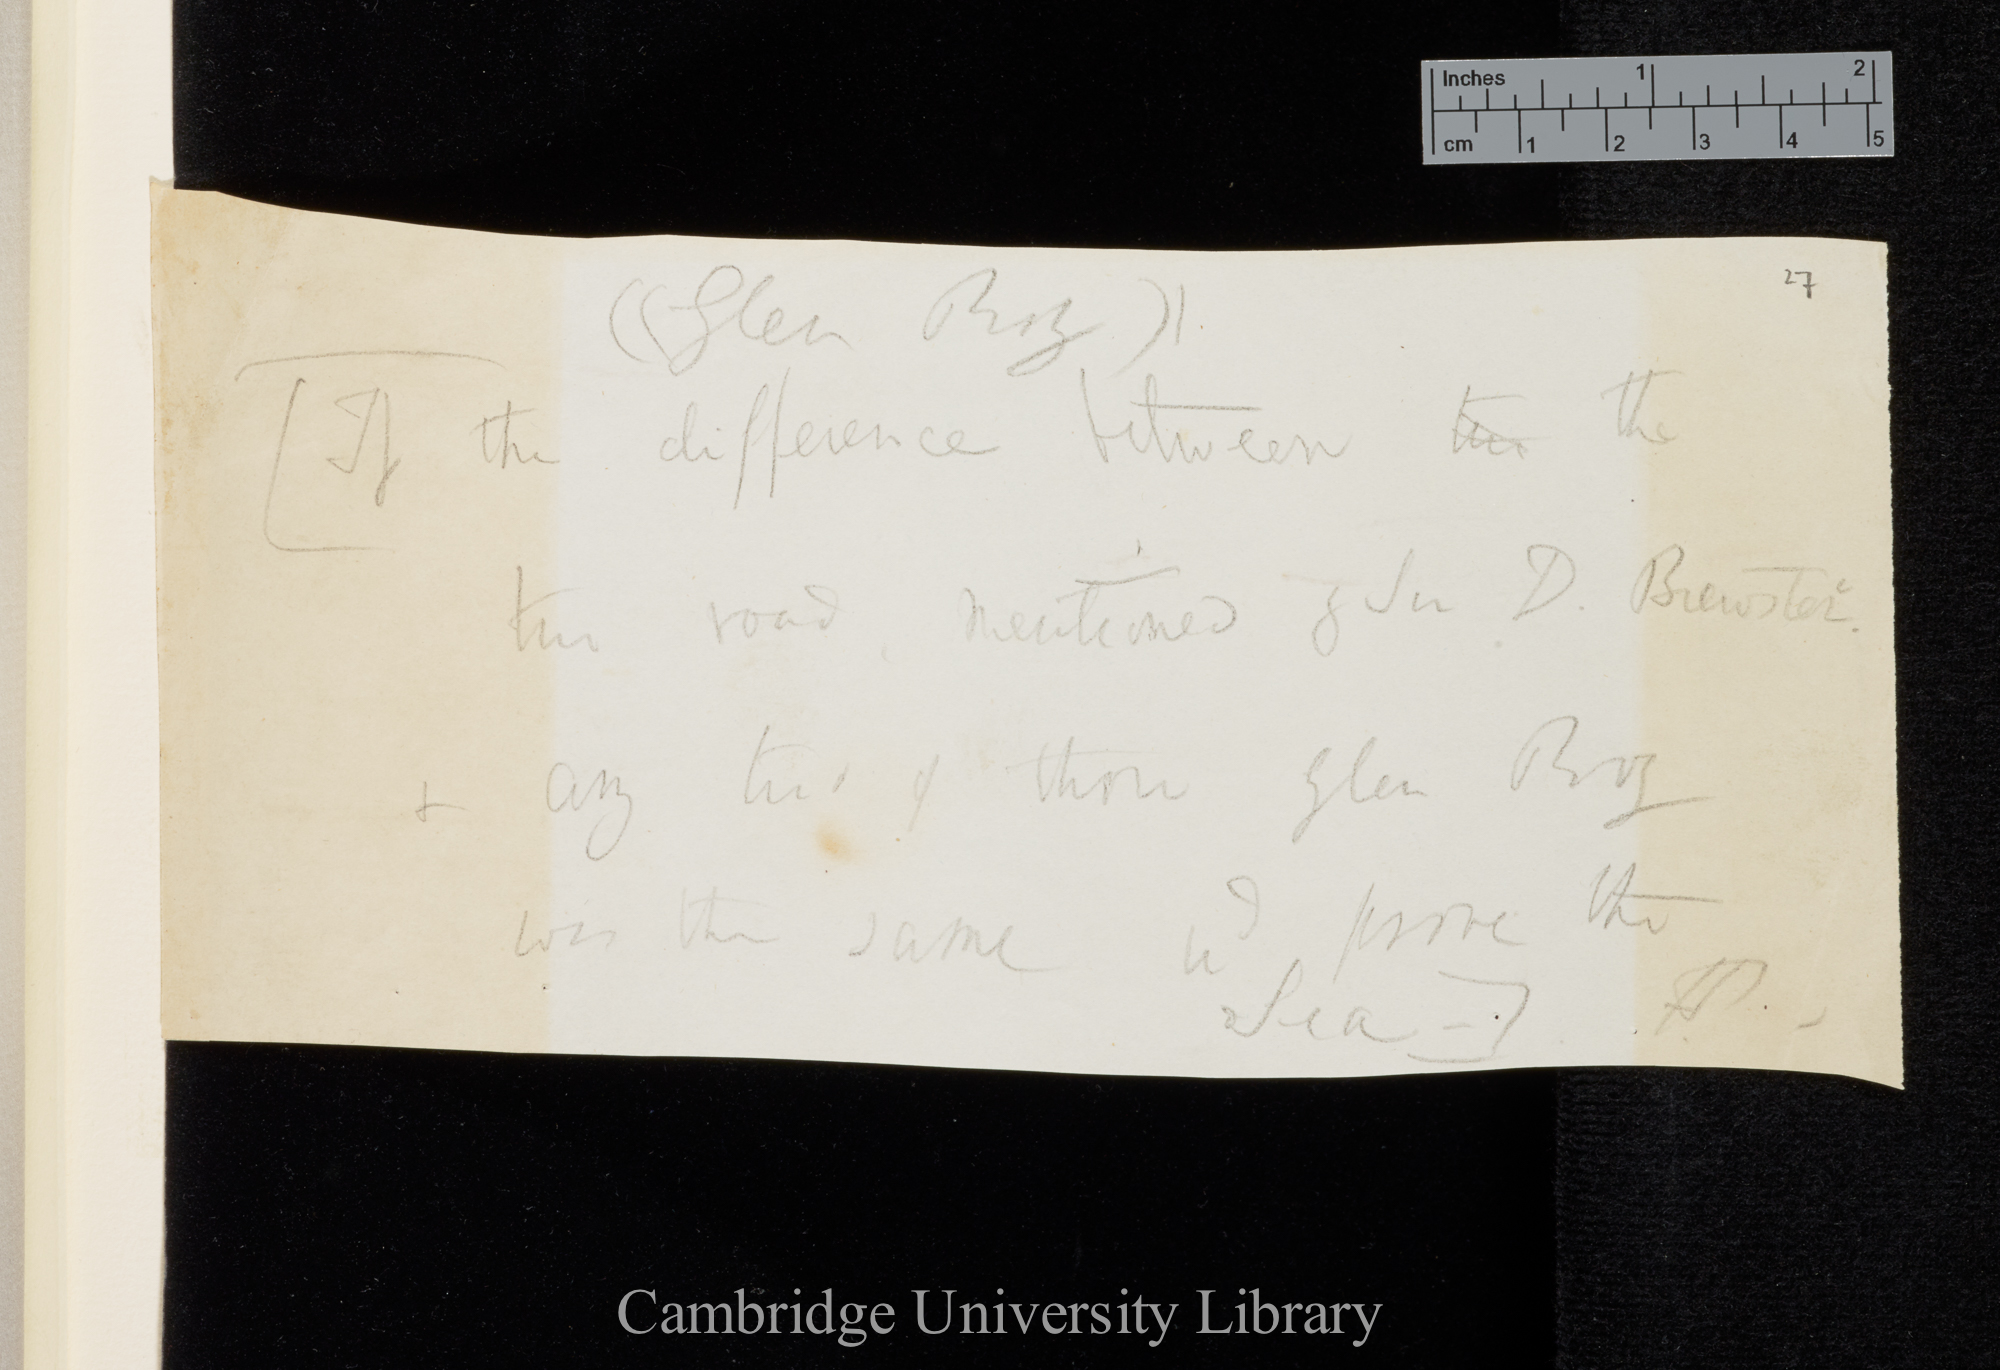 Inches 1 2
cm 1 2 3 4 5
27
((Glen Roy))
[If the difference between this the
this road, mentioned by Sir D. Brewster.
& any two of those Glen Roy
was the same wd prove the
Sea —]
Cambridge University Library